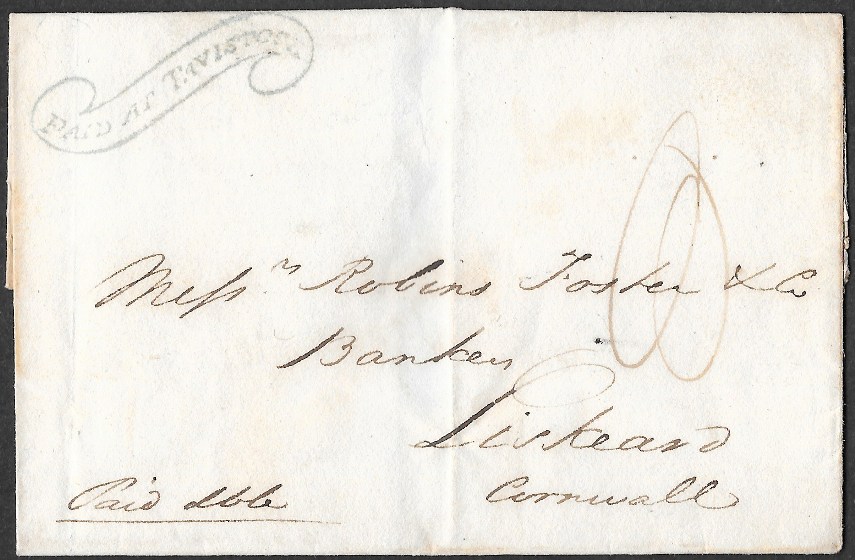 PAID AT TAVISTOCK
Mess.rs Robins Foster & Co
Bankers
Liskeard
Cornwall
Paid dble